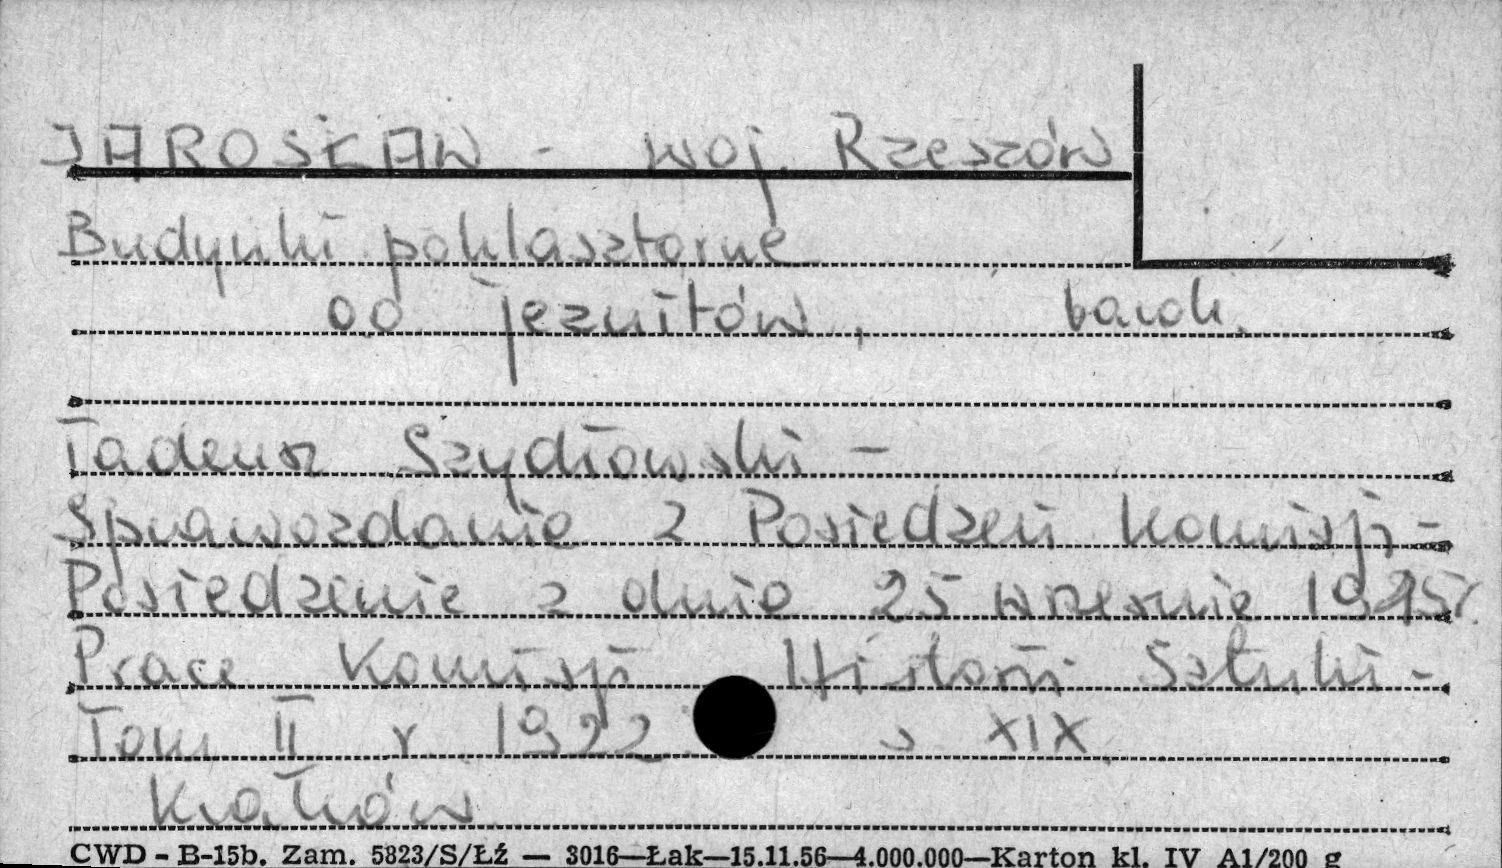 JAROSŁAW - woj. Rzeszów
Budynki poklasztorne
oo jezuitów, barok.
Tadeusz Szydłowski -
Sprawozdanie z Posiedzeń Komisji -
Posiedzenie z dnia 25 września r.
Prace Komisji Historii Sztuki -
Tom II r 1922 s XIX
Kraków
CWD - B-15b. Zam. 5823/S/Łź — 3016—Łak—15.11.56—4.000.000—Karton kl. IV A1/200 g